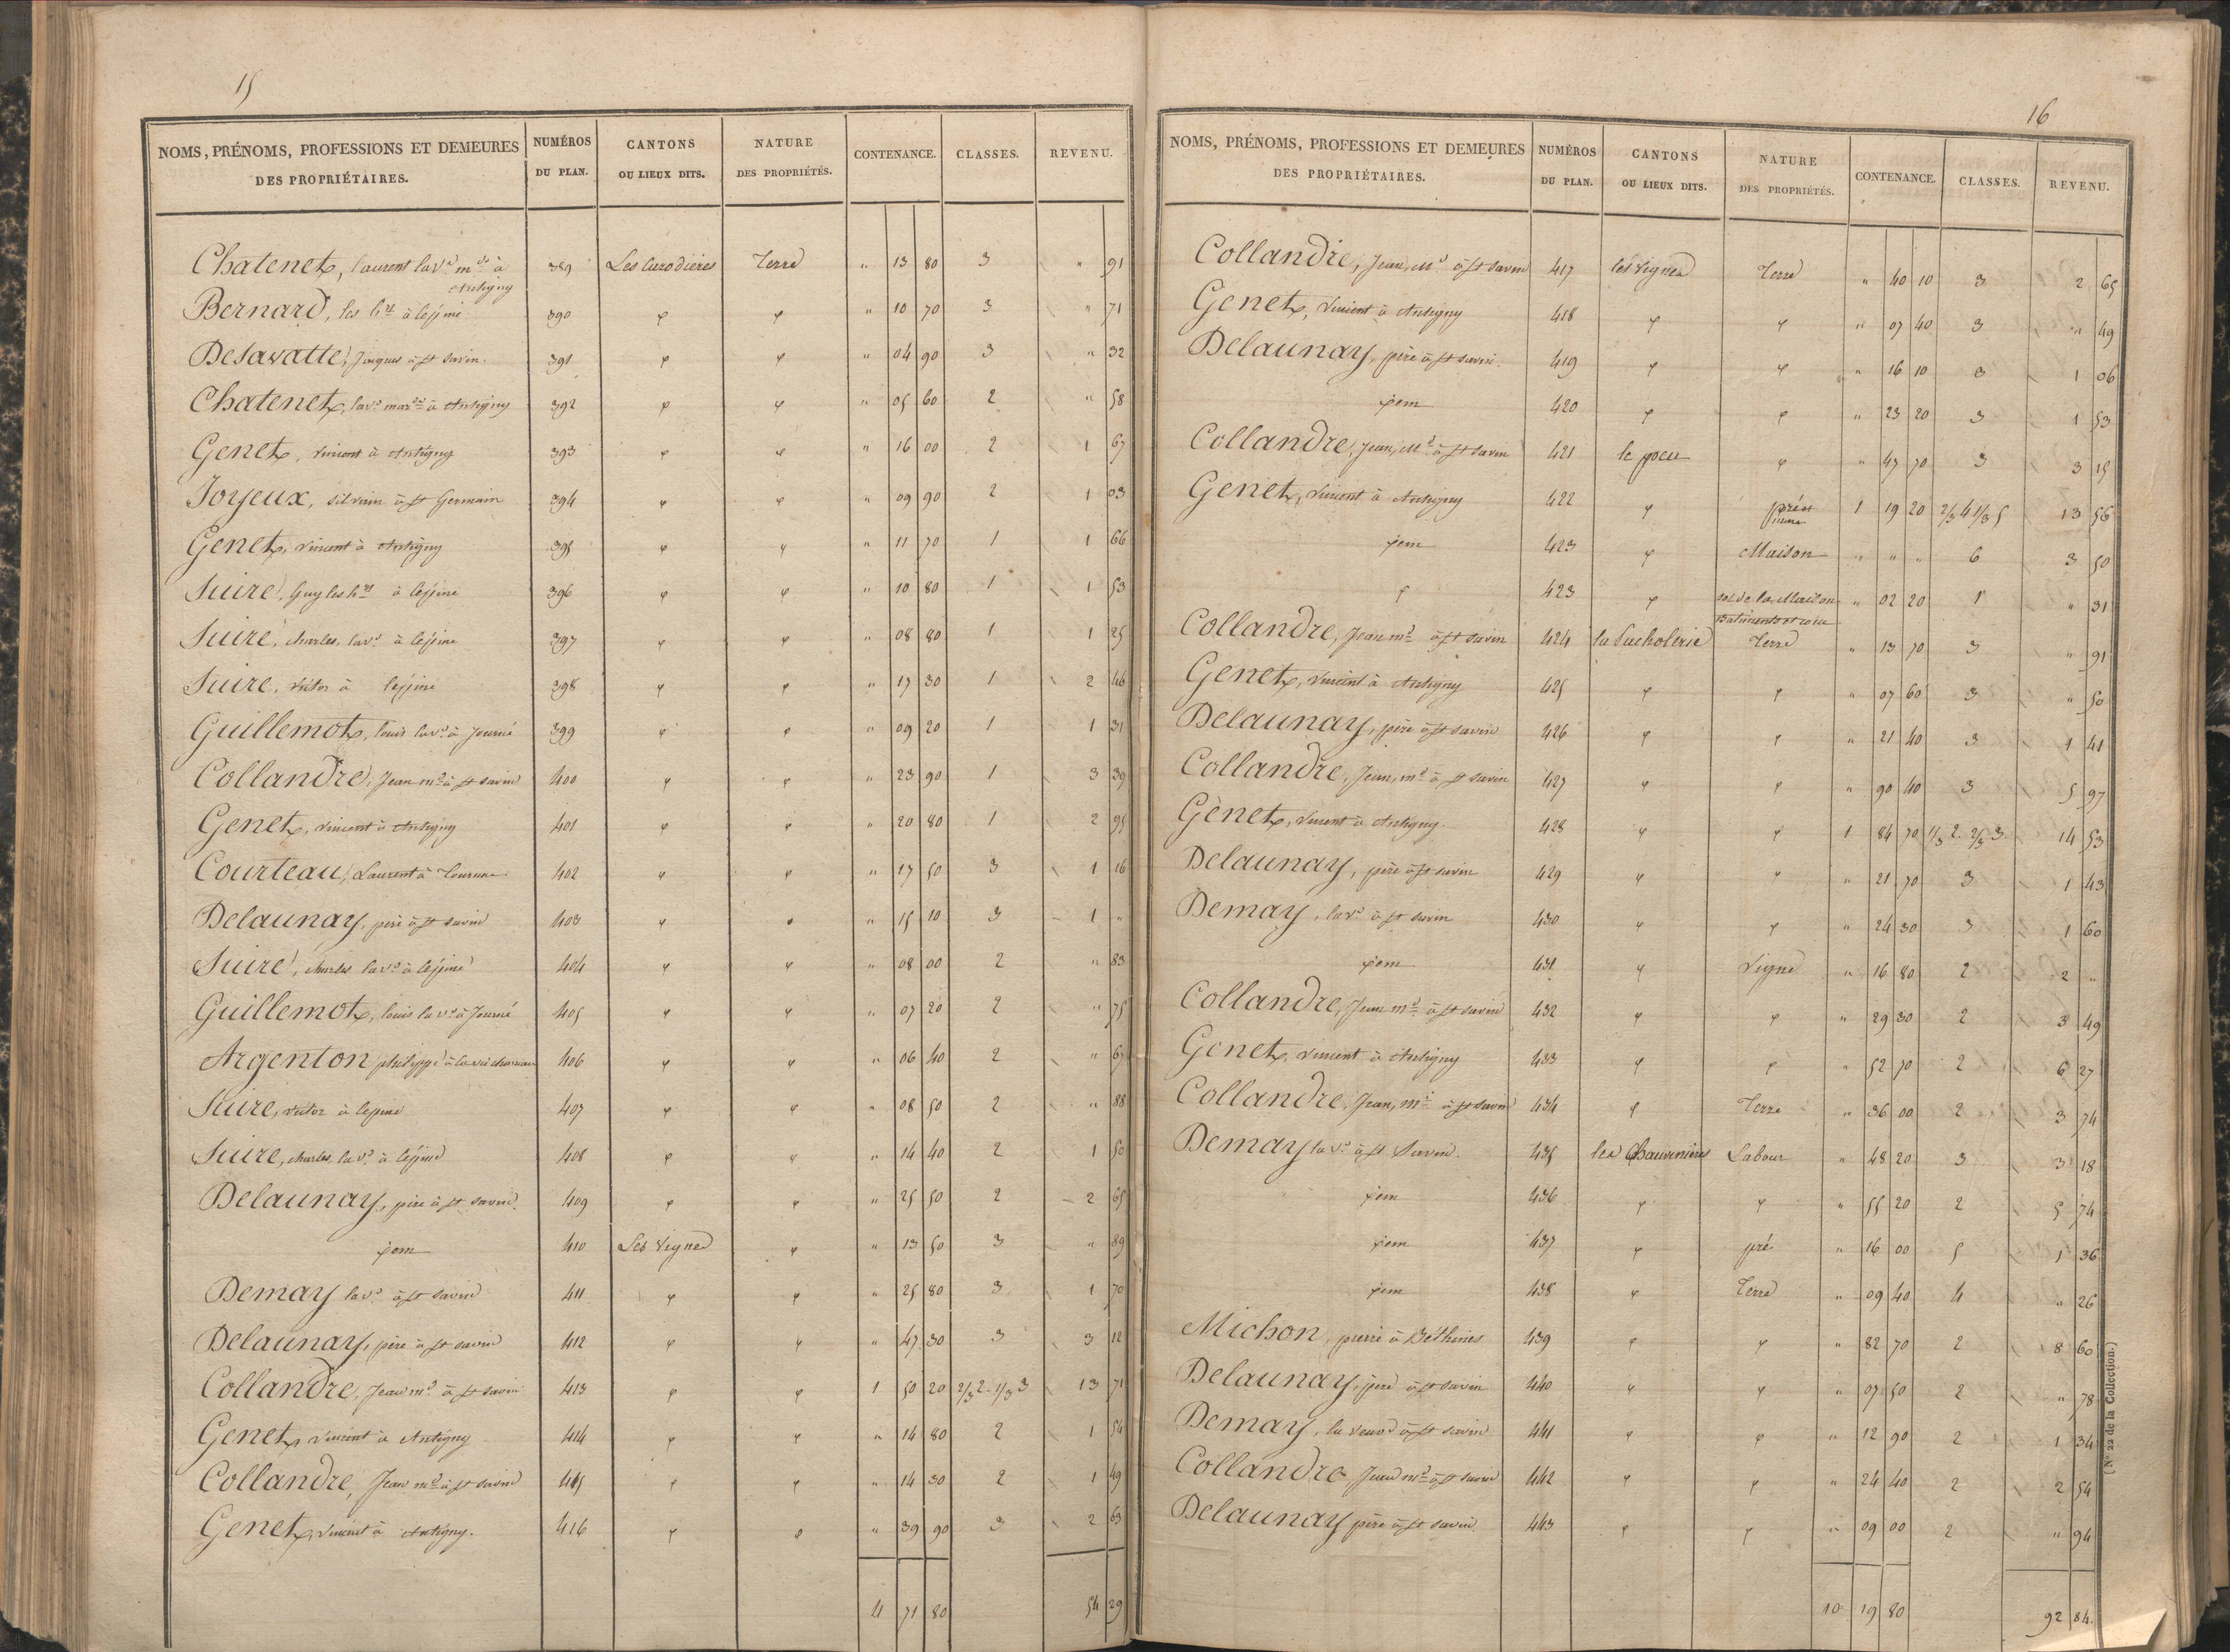 15
NOMS, PRÉNOMS, PROFESSIONS ET DEMEURES DES PROPRIÉTAIRES. NUMÉROS DU PLAN. CANTONS OU LIEUX DITS. NATURE DES PROPRIÉTÉS. CONTENANCE. CLASSES. REVENU.
Chatenet, laurent la ve mde à Antigny 389 Les Curodieres Terre " 13 80 3 " 91
Bernard, les hrs à lépine 390 " " " 10 70 3 " 71
Desavatte, Jacques à st Savin. 391 " " " 04 90 3 " 32
Chatenet, la ve marde à Antigny 392 " " " 05 60 2 " 58
Genet, vincent à Antigny 393 " " " 16 00 2 1 67
Joyeux, silvain à st Germain 394 " " " 09 90 2 1 03
Genet, vincent à Antigny 395 " " " 11 70 1 1 66
Suire, Guy les hrs à lépine 396 " " " 10 80 1 1 53
Suire, charles, la ve à lépine 397 " " " 08 80 1 1 25
Suire, victor à lépine 398 " " " 17 30 1 2 46
Guillemot, louis la ve à Journé 399 " " " 09 20 1 1 31
Collandre, Jean md à st savin 400 " " " 23 90 1 3 39
Genet, vincent à Antigny 401 " " " 20 80 1 2 95
Courteau, Laurent à 402 " " " 17 50 3 1 16
Delaunay, père à st savin 403 " " " 15 10 3 1 "
Suire, charles la ve à lépine 404 " " " 08 00 2 " 83
Guillemot, louis la ve à Journé 405 " " " 07 20 2 " 75
Argenton philippe à 406 " " " 06 40 2 " 67
Suire, victor à lepine 407 " " " 08 50 2 " 88
Suire, charles, la ve à lépine 408 " " " 14 40 2 1 50
Delaunay, père à st savin. 409 " " " 25 50 2 2 65
idem 410 Les Vignes " " 13 50 3 " 89
Demay la ve à st savin 411 " " " 25 80 3 1 70
Delaunay, père à st savin 412 " " " 47 30 3 3 12
Collandre, Jean md à st savin 413 " " 1 50 20 2/3 2. 1/3 3 13 71
Genet, vincent à Antigny 414 " " " 14 80 2 1 54
Collandre, Jean md à st savin 415 " " " 14 30 2 1 49
Genet, vincent à Antigny. 416 " " " 39 90 3 2 63
4 71 80 54 29
16
NOMS, PRÉNOMS, PROFESSIONS ET DEMEURES DES PROPRIÉTAIRES. NUMÉROS DU PLAN. CANTONS OU LIEUX DITS. NATURE DES PROPRIÉTÉS. CONTENANCE. CLASSES. REVENU.
Collandre, Jean, Md à st Savin 417 les Vignes Terre " 40 10 3 2 65
Genet, vincent à Antigny 418 " " " 07 40 3 " 49
Delaunay, père à st savin. 419 " " " 16 10 3 1 06
idem 420 " " " 23 20 3 1 53
Collandre, Jean, Md à st savin 421 le poeu " " 47 70 3 3 15
Genet, vincent à Antigny 422 " pré et 1 19 20 2/3 4 1/3 5 13 56
idem 423 " Maison " " " 6 3 50
" 423 " sol de la Maison Batiments et cour " 02 20 1 " 31
Collandre, Jean md à st savin 424 la Sucholerie Terre " 13 70 3 " 91
Genet, vincent à Antigny 425 " " " 07 60 3 " 50
Delaunay, père à st savin 426 " " " 21 40 3 1 41
Collandre, Jean, md à st savin 427 " " " 90 40 3 5 97
Genet, vincent à Antigny. 428 " " 1 84 70 1/3 2. 2/3 3. 14 53
Delaunay, père à st savin 429 " " " 21 70 3 1 43
Demay, la ve à st savin 430 " " " 24 30 3 1 60
idem 431 " Vigne " 16 80 2 2 "
Collandre, Jean md à st savin 432 " " " 29 30 2 3 49
Genet, vincent à Antigny 433 " " " 52 70 2 6 27
Collandre, Jean, md à st savin 434 " Terre " 36 00 2 3 74
Demay la ve à st Savin. 435 les Chauvinieres Labour " 48 20 3 3 18
idem 436 " " " 55 20 2 5 74
idem 437 " pré " 16 00 5 1 36
idem 438 " Terre " 09 40 4 " 26
Michon, pierre à Béthines 439 " " " 82 70 2 8 60
Delaunay, père à st savin 440 " " " 07 50 2 " 78
Demay, la veuve à st savin 441 " " " 12 90 2 1 34
Collandre Jean md à st savin 442 " " " 24 40 2 2 54
Delaunay père à st savin 443 " " " 09 00 2 " 94
10 19 80 92 84.
(N° 22 de la Collection.)